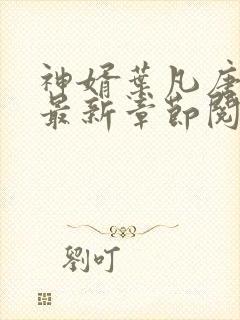 神婿葉凡唐
最新章節閱
劉叮